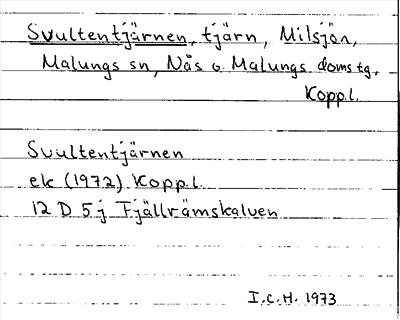 Svultentjärnen, tjärn, Milsjön,
Malungs sn, Nås o Malungs domstg,
Koppl.
Svultentjärnen
ek (1972) Koppl.
12 D 5j Fjällrämskalven
I.C.H. 1973